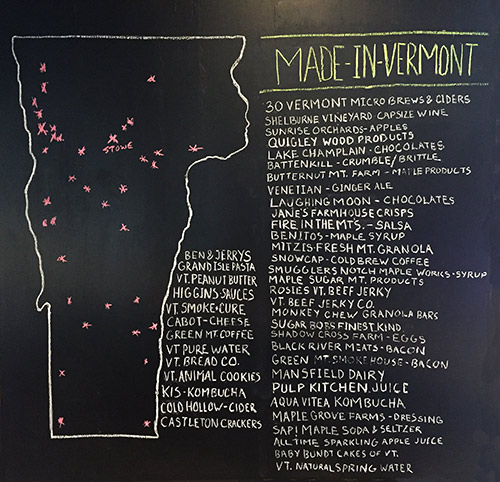 MADE-IN-VERMONT
STOWE
30 VERMONT MICRO BREWS & CIDERS
SHELBURNE VINEYARD CAPSIZE WINE
SUNRISE ORCHARDS-APPLES
QUIGLEY WOOD PRODUCTS
LAKE CHAMPLAIN - CHOCOLATES
BATTENKILL - CRUMBLE/BRITTLE
BUTTERNUT MT. FARM - MAPLE PRODUCTS
VENETIAN - GINGER ALE
LAUGHING MOON - CHOCOLATES
JANE'S FARMHOUSE CRISPS
FIRE IN THE MT'S. - SALSA
BENITOS - MAPLE SYRUP
MITZIS FRESH MT. GRANOLA
SNOWCAP - COLD BREW COFFEE
SMUGGLERS NOTCH MAPLE WORKS - SYRUP
MAPLE SUGAR MT. PRODUCTS
ROSIES VT. BEEF JERKY
VT. BEEF JERKY CO.
MONKEY CHEW GRANOLA BARS
SUGAR BOBS FINEST KIND
SHADOW CROSS FARM - EGGS
BLACK RIVER MEATS - BACON
GREEN MT. SMOKEHOUSE - BACON
MANSFIELD DAIRY
PULP KITCHEN JUICE
AQUA VITEA KOMBUCHA
MAPLE GROVE FARMS - DRESSING
SAP! MAPLE SODA & SELTZER
ALL TIME SPARKLING APPLE JUICE
BABY BUNDT CAKES OF VT.
VT. NATURAL SPRING WATER
BEN & JERRYS
GRAND ISLE PASTA
VT. PEANUT BUTTER
HIGGINS-SAUCES
VT. SMOKE & CURE
CABOT-CHEESE
GREEN MT. COFFEE
VT PURE WATER
VT. BREAD CO.
VT. ANIMAL COOKIES
KIS-KOMBUCHA
COLD HOLLOW-CIDER
CASTLETON CRACKERS